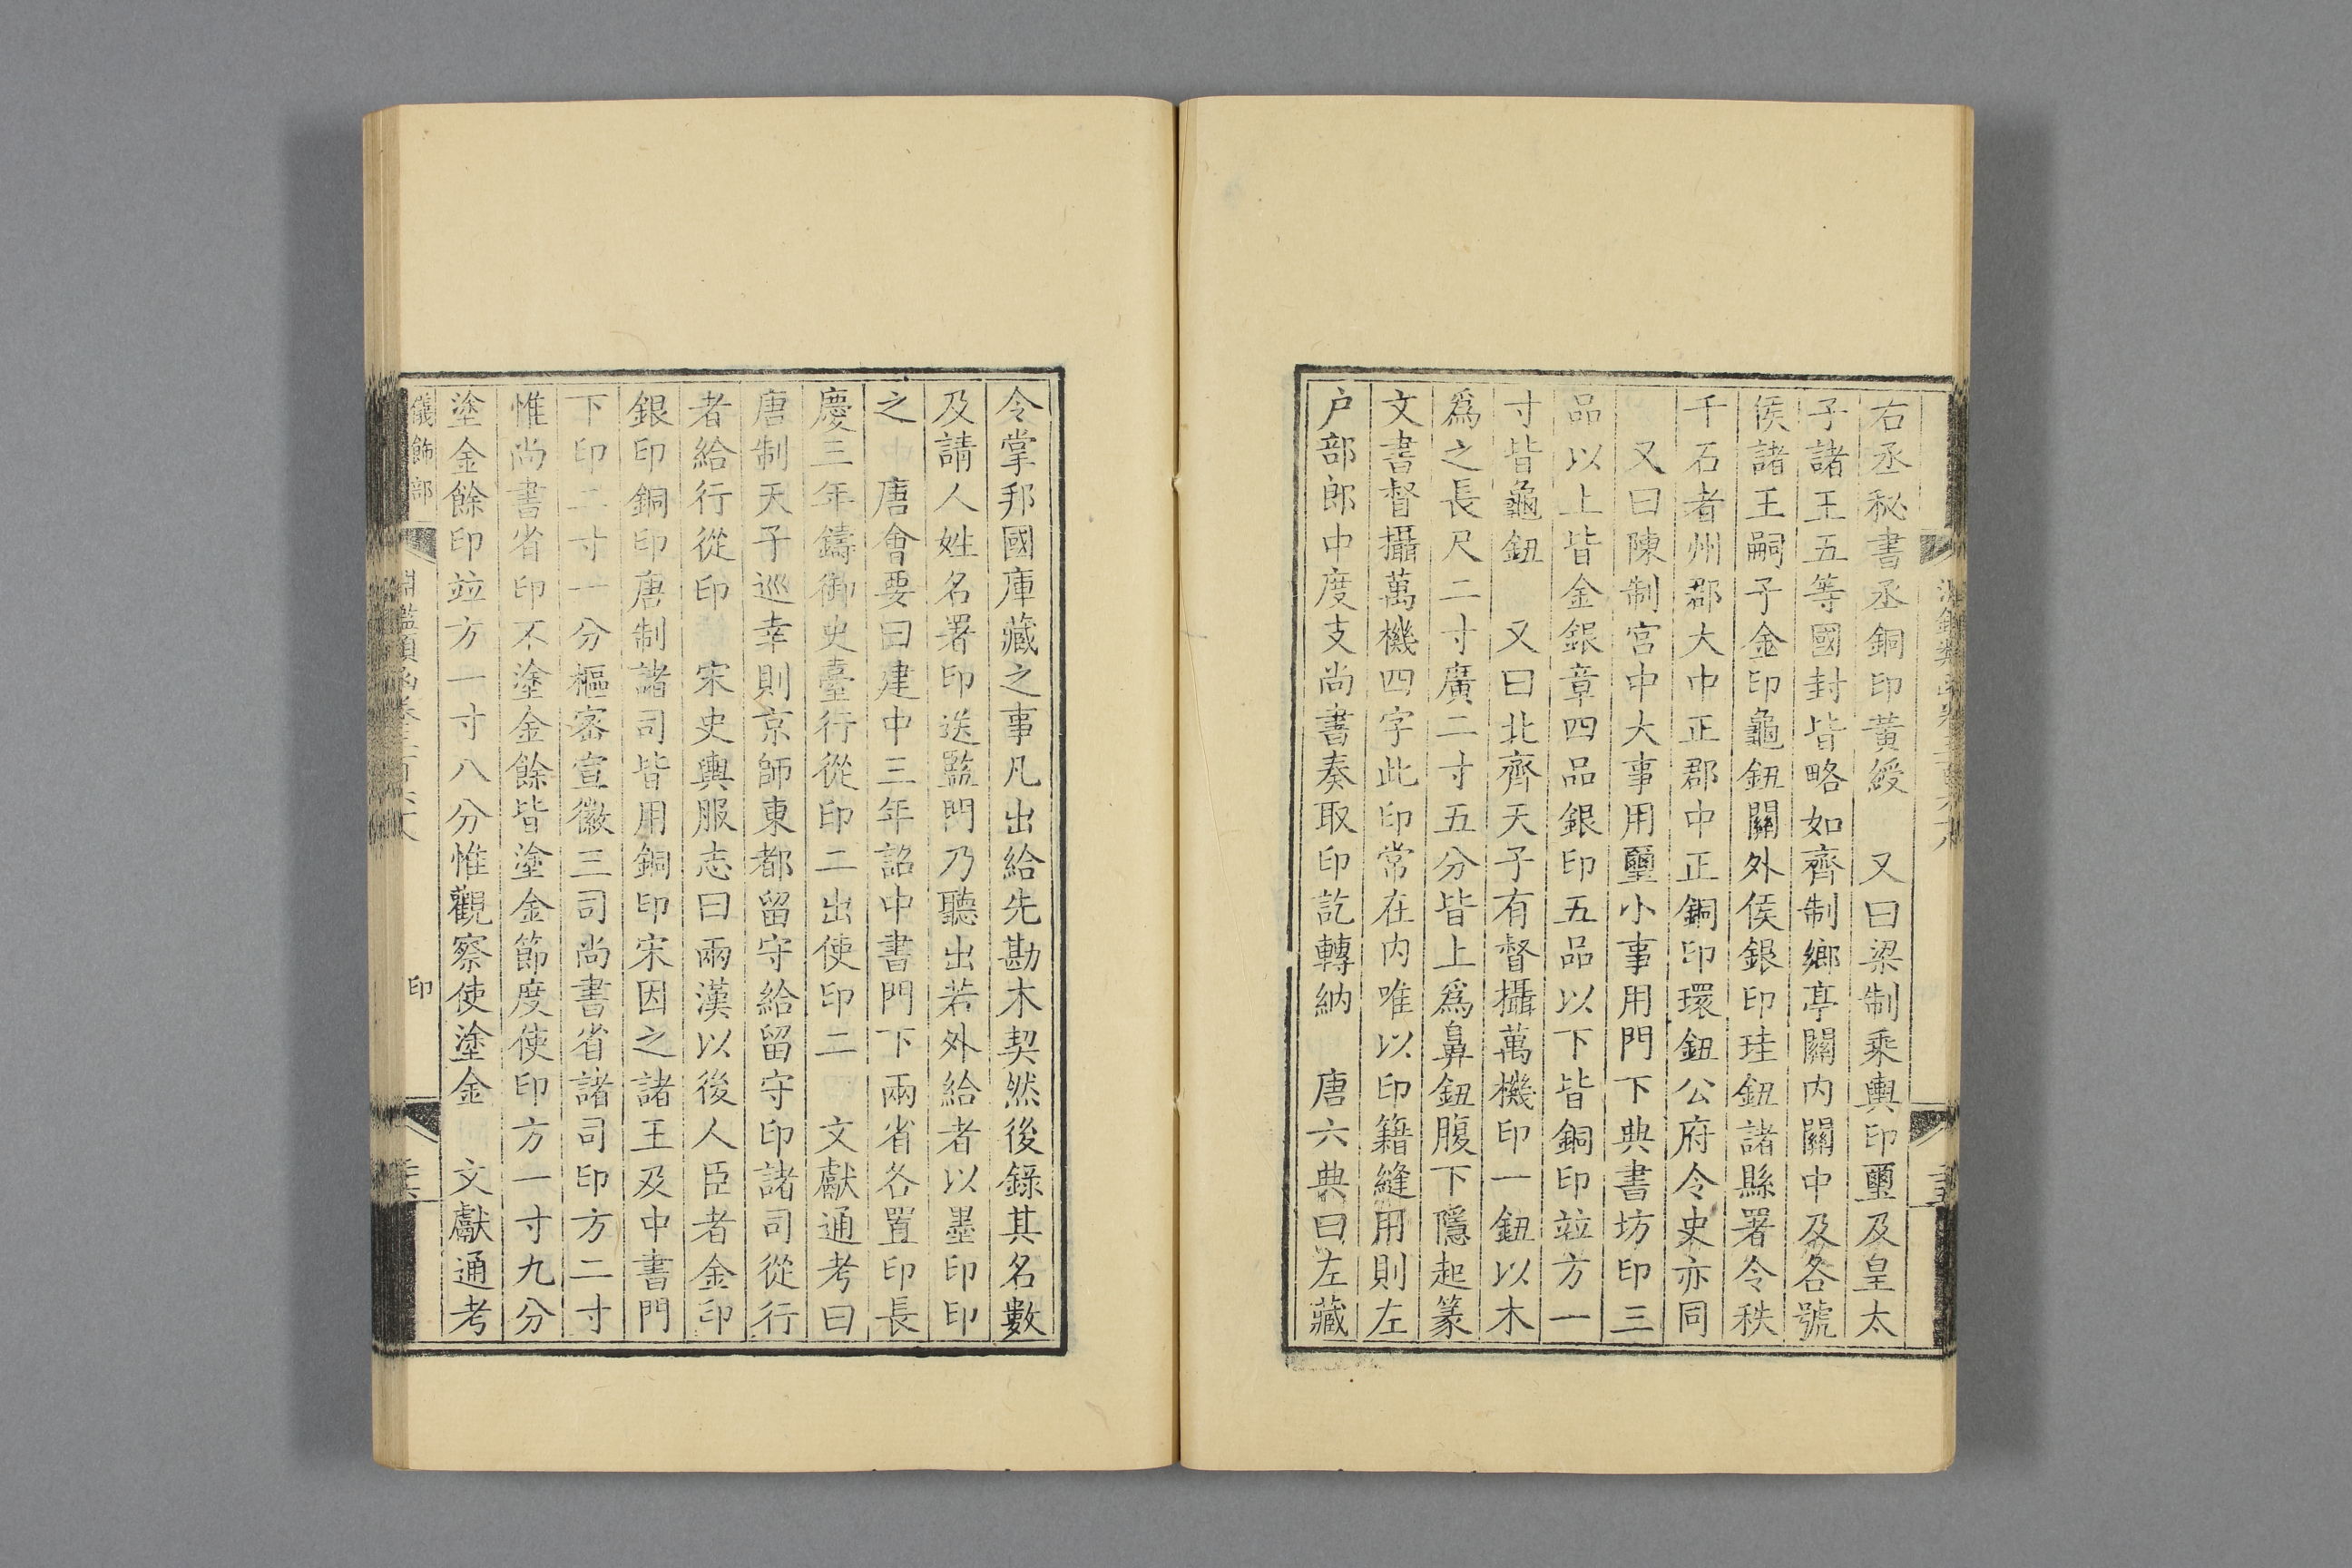 右丞秘書丞銅印黄綬　又曰梁制乘輿印璽及皇太
子諸王五等國封皆略如齊制鄉亭關内關中及各號
侯諸王嗣子金印龜鈕關外侯銀印珪鈕諸縣署令秩
千石者州郡大中正郡中正銅印環鈕公府令史亦同
　又曰陳制宮中大事用璽小事用門下典書坊印三
品以上皆金銀章四品銀印五品以下皆銅印竝方一
寸皆龜鈕　又曰北齊天子有督攝萬機印一鈕以木
爲之長尺二寸廣二寸五分皆上爲鼻鈕腹下隱起篆
文書督攝萬機四字此印常在内唯以印籍縫用則左
户部郎中度支尚書奏取印訖轉納　唐六典曰左藏
令掌邦國庫藏之事凡出給先勘木契然後錄其名數
及請人姓名署印送監門乃聽出若外給者以墨印印
之　唐會要曰建中三年詔中書門下兩省各置印長
慶三年鑄御史臺行從印二出使印二　文獻通考曰
唐制天子巡幸則京師東都留守給留守印諸司從行
者給行從印　宋史輿服志曰兩漢以後人臣者金印
銀印銅印唐制諸司皆用銅印宋因之諸王及中書門
下印二寸一分樞密宣徽三司尚書省諸司印方二寸
惟尚書省印不塗金餘皆塗金節度使印方一寸九分
塗金餘印竝方一寸八分惟觀察使塗金　文獻通考
儀飾部
淵鑑類函卷三百六十八
印